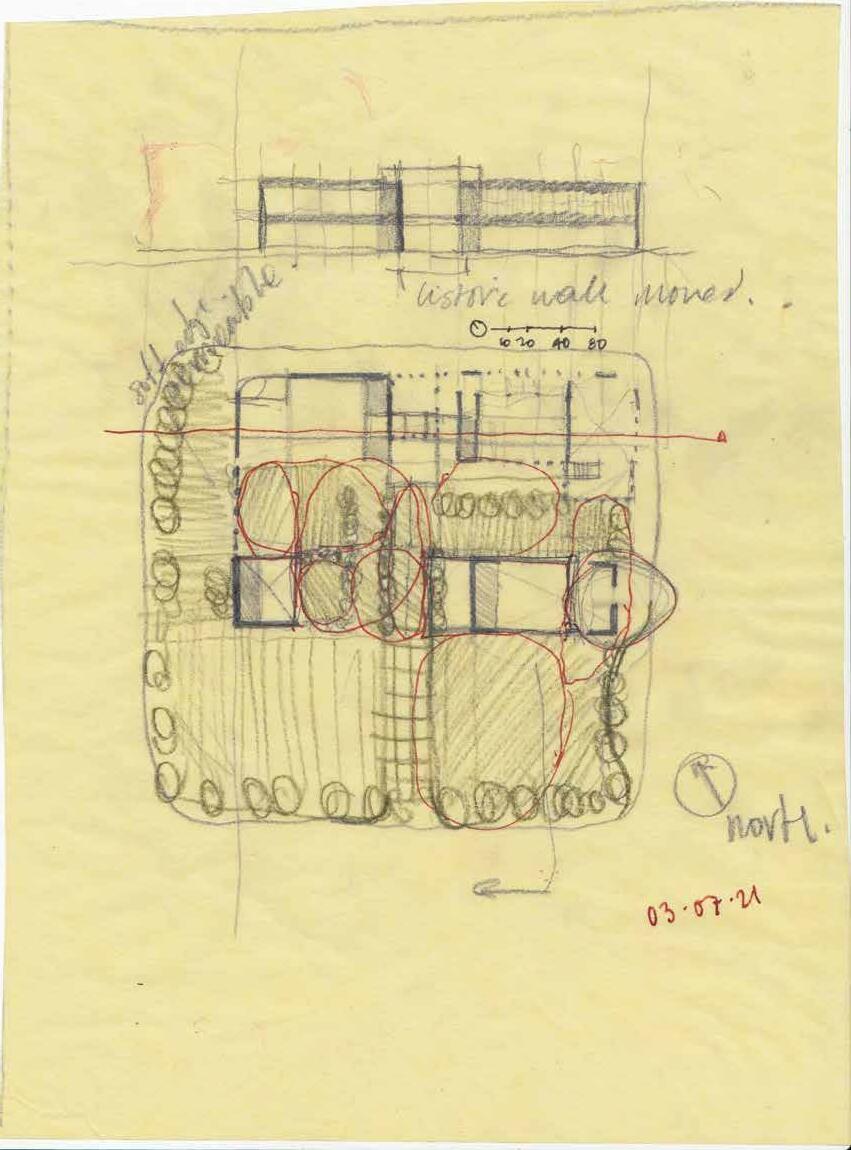 soft edge
permeable
wall Moved.
10 20 40 80
north.
03·07·21